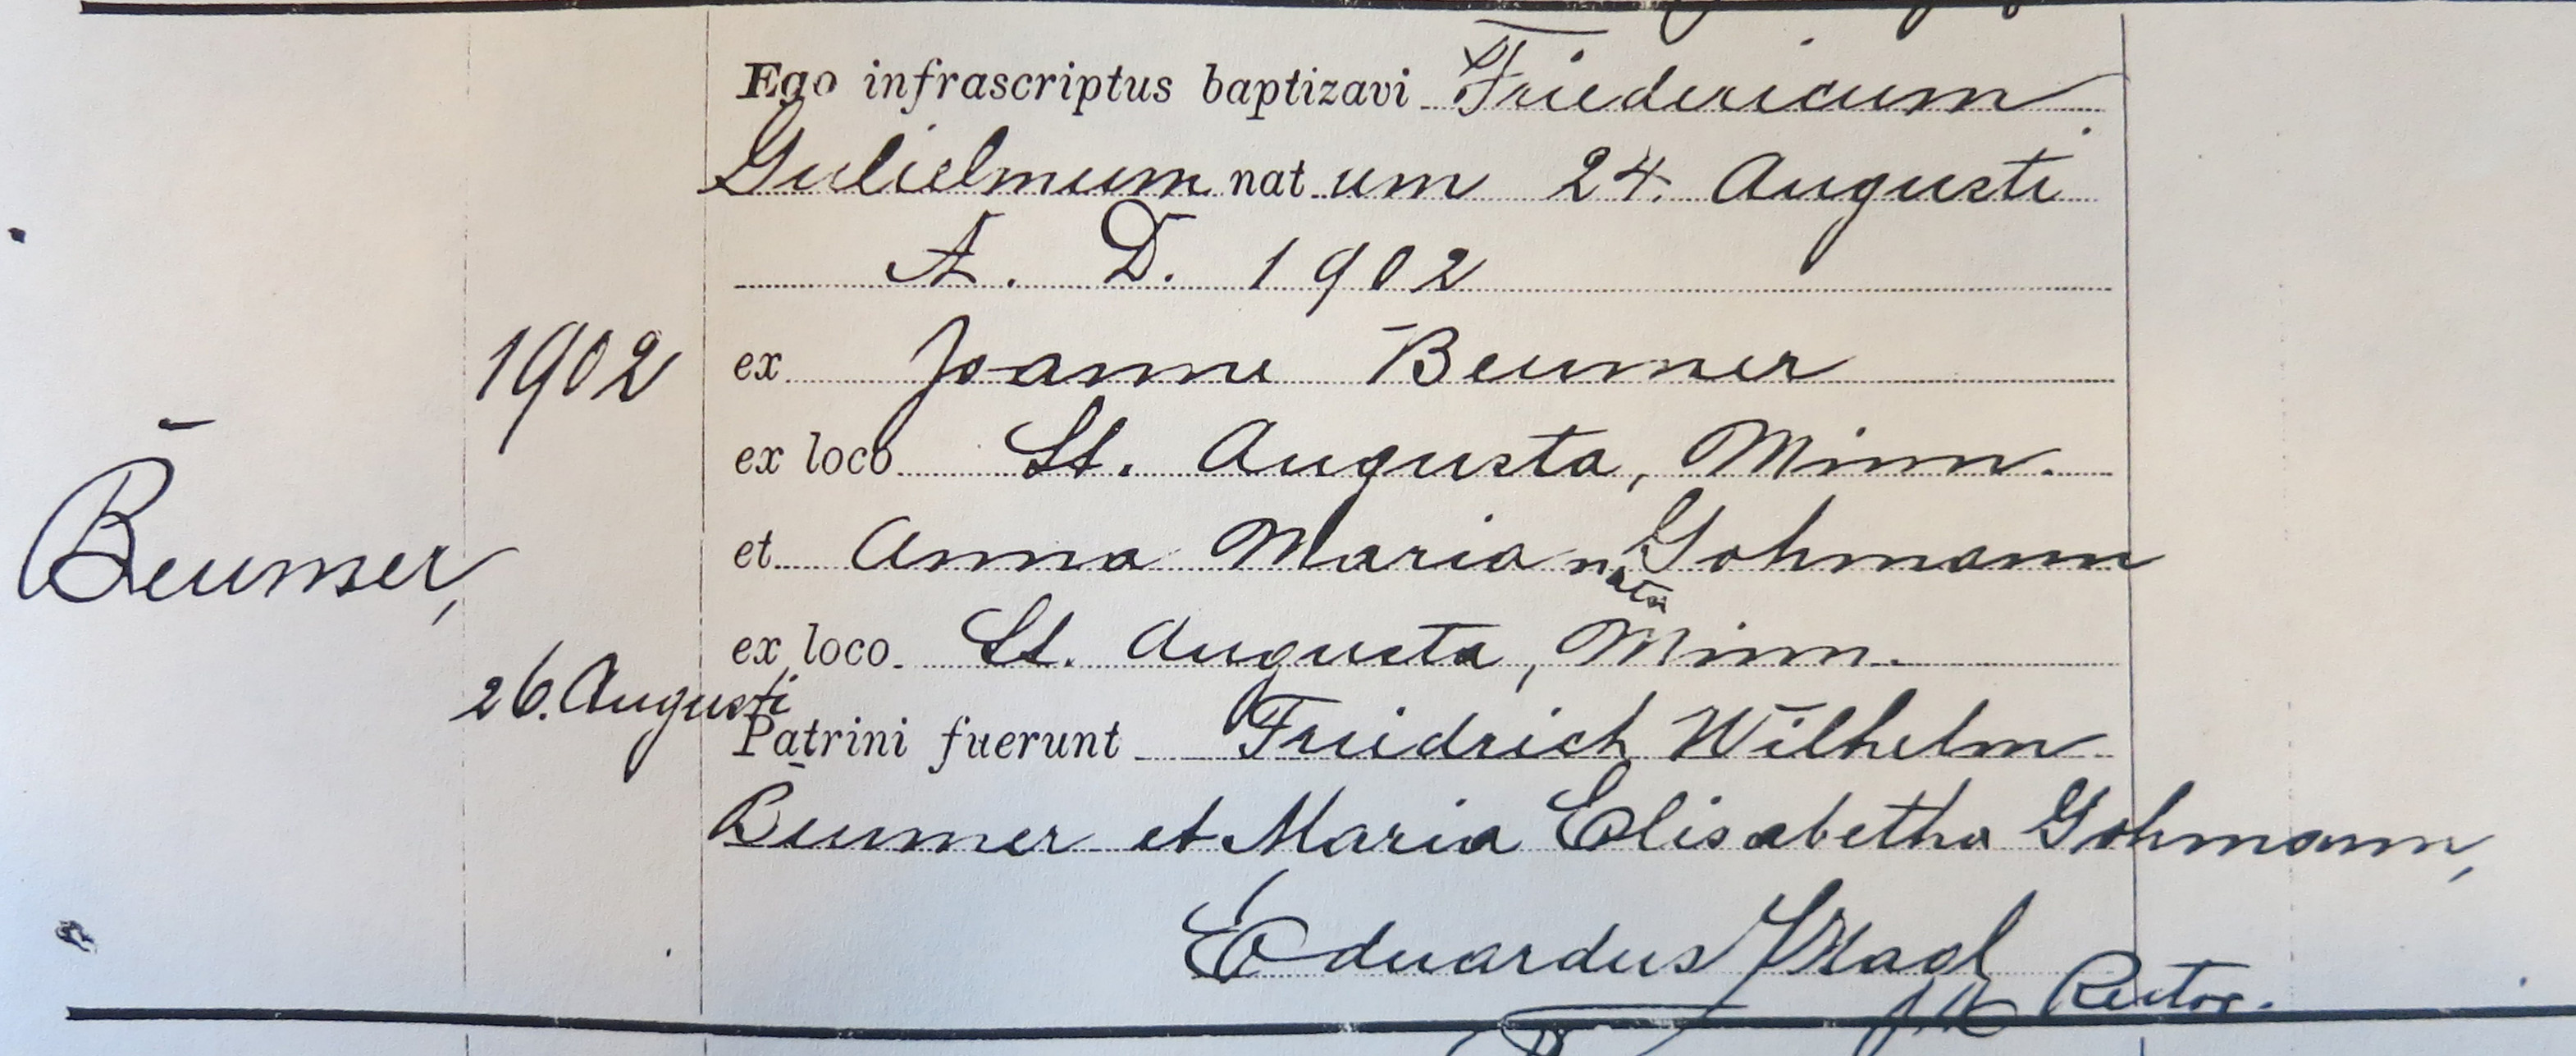 Ego infrascriptus baptizavi Friedericum
Gulielmum natum 24. Augusti
A. D. 1902
1902
ex Joanne Beumer
ex loco St. Augusta, Minn.
Beumer,
et Anna Maria nata Gohmann
ex loco St. Augusta, Minn.
26. Augusti
Patrini fuerunt Friedrich Wilhelm
Beumer et Maria Elisabetha Gohmann,
Eduardus
Rector.